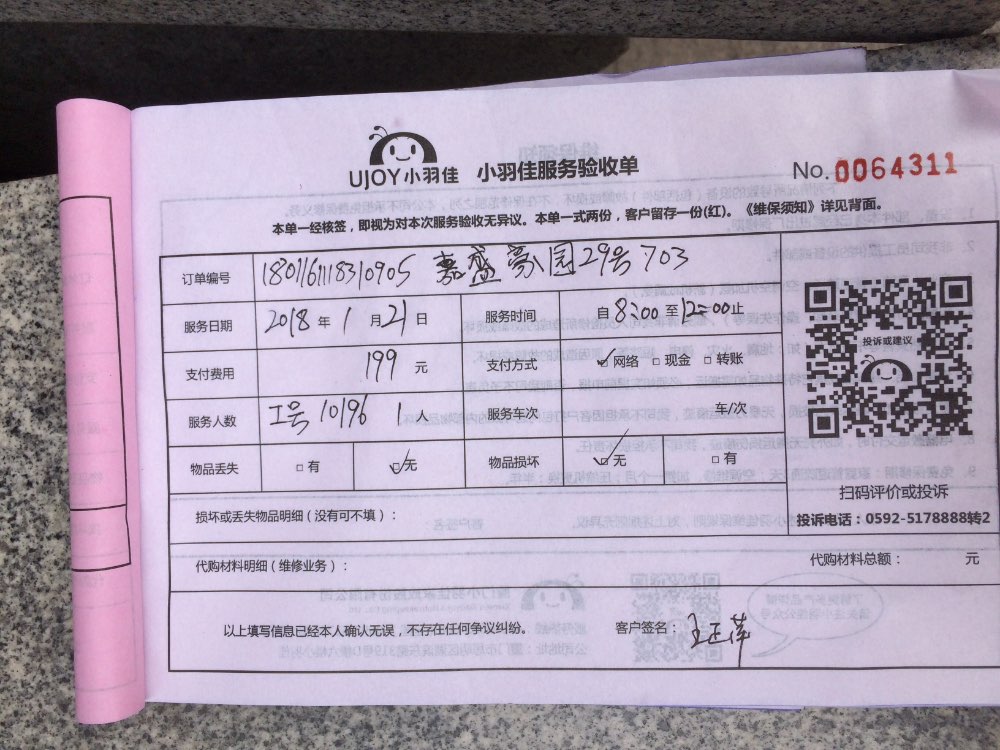 UJOY小羽佳 小羽佳服务验收单 No.0064311
本单一经核签，即视为对本次服务验收无异议。本单一式两份，客户留存一份(红)。《维保须知》详见背面。
订单编号 18011611831090S 嘉盛豪园29号703
服务日期 2018年1月21日 服务时间 自8:00至12:00止
支付费用 199元 支付方式 ☑网络 □现金 □转账
服务人数 工号10196 1人 服务车次 车/次
物品丢失 □有 ☑无 物品损坏 ☑无 □有
投诉或建议
扫码评价或投诉
投诉电话：0592-5178888转2
损坏或丢失物品明细（没有可不填）：
代购材料明细（维修业务）： 代购材料总额： 元
以上填写信息已经本人确认无误，不存在任何争议纠纷。 客户签名：王正萍